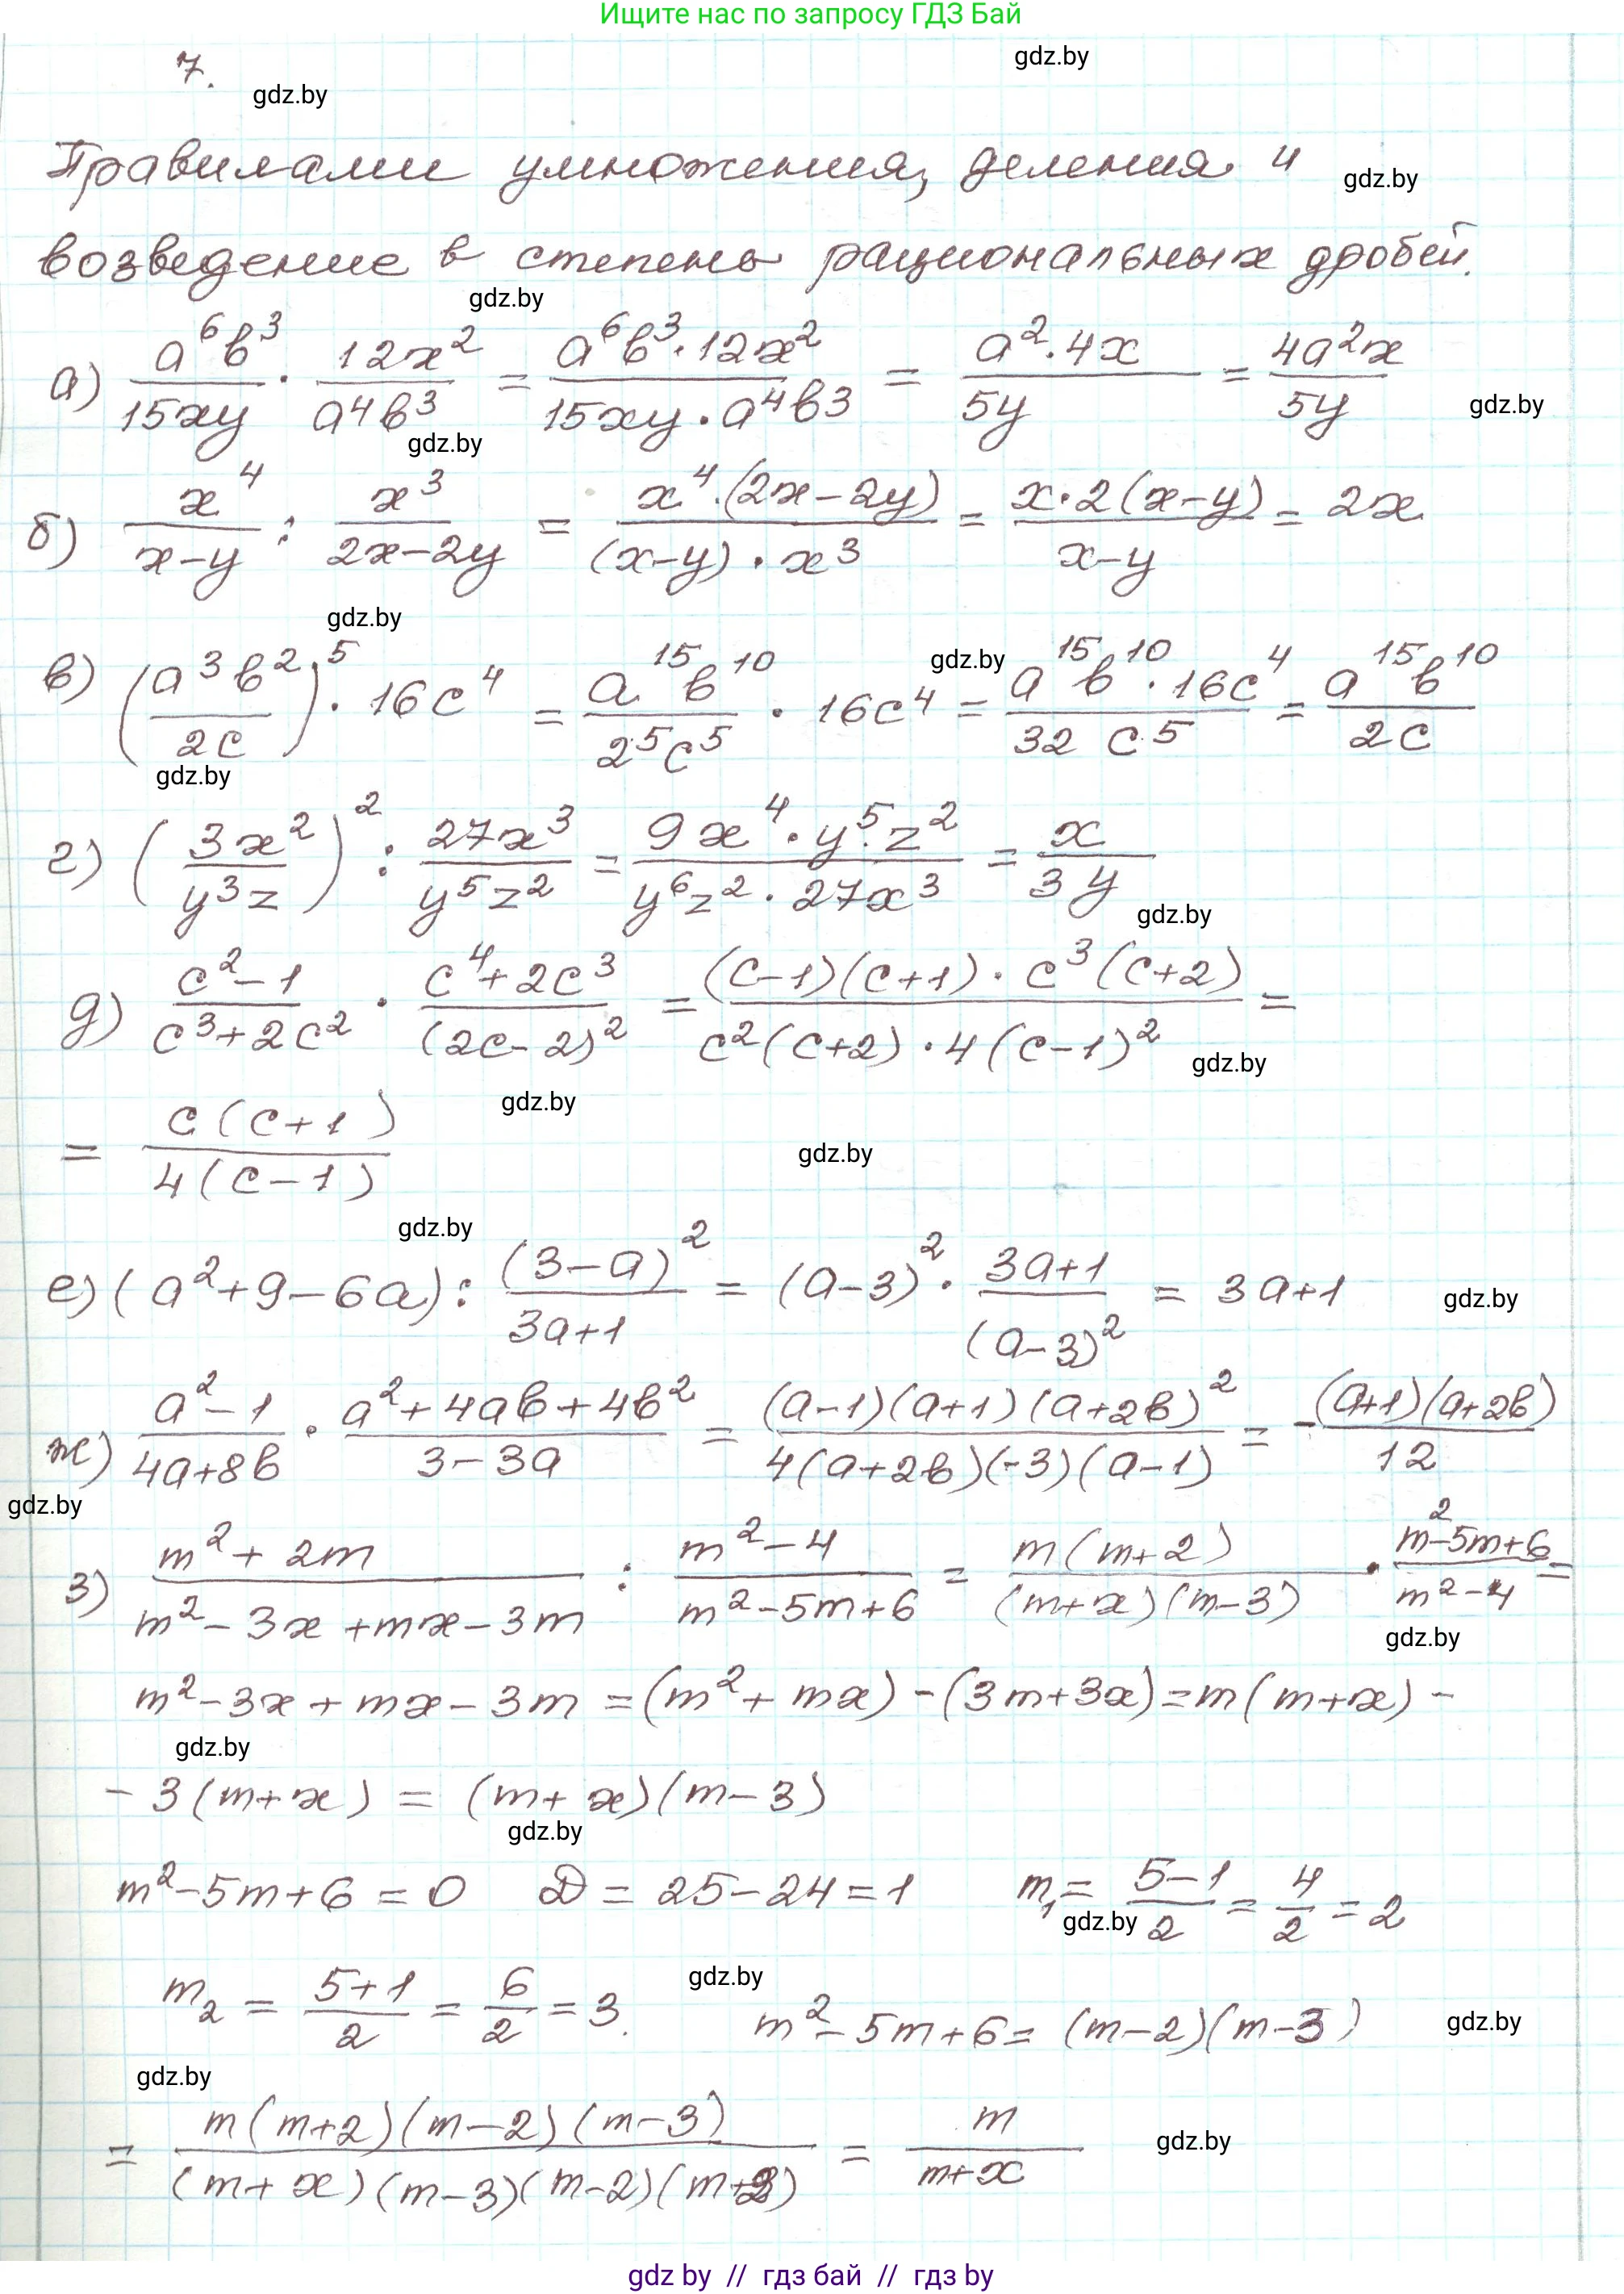 Ищите нас по запросу ГДЗ Бай
7.
gdz.by
gdz.by
Правилами умножения, деления и
gdz.by
возведение в степень рациональных дробей.
gdz.by
а) a⁶b³/15xy · 12x²/a⁴b³ = a⁶b³·12x²/15xy·a⁴b3 = a²·4x/5y = 4a²x/5y
gdz.by
gdz.by
б) x⁴/x-y : x³/2x-2y = x⁴·(2x-2y)/(x-y)·x³ = x·2(x-y)/x-y = 2x
gdz.by
gdz.by
в) (a³b²/2c)⁵ · 16c⁴ = a¹⁵b¹⁰/2⁵c⁵ · 16c⁴ = a¹⁵b¹⁰·16c⁴/32c⁵ = a¹⁵b¹⁰/2c
gdz.by
г) (3x²/y³z)² : 27x³/y⁵z² = 9x⁴·y⁵·z²/y⁶z²·27x³ = x/3y
gdz.by
д) c²-1/c³+2c² · c⁴+2c³/(2c-2)² = (c-1)(c+1)·c³(c+2)/c²(c+2)·4(c-1)² =
gdz.by
gdz.by
= c(c+1)/4(c-1)
gdz.by
gdz.by
е) (a²+9-6a) : (3-a)²/3a+1 = (a-3)² · 3a+1/(a-3)² = 3a+1
gdz.by
ж) a²-1/4a+8b · a²+4ab+4b²/3-3a = (a-1)(a+1)(a+2b)²/4(a+2b)(-3)(a-1) = -(a+1)(a+2b)/12
gdz.by
з) m²+2m/m²-3x+mx-3m : m²-4/m²-5m+6 = m(m+2)/(m+x)(m-3) · m²-5m+6/m²-4 =
gdz.by
m²-3x+mx-3m = (m²+mx)-(3m+3x) = m(m+x)-
gdz.by
-3(m+x) = (m+x)(m-3)
gdz.by
m²-5m+6=0 D=25-24=1 m₁= 5-1/2 = 4/2 = 2
gdz.by
m₂ = 5+1/2 = 6/2 = 3. m²-5m+6 = (m-2)(m-3)
gdz.by
gdz.by
gdz.by
= m(m+2)(m-2)(m-3)/(m+x)(m-3)(m-2)(m+2) = m/m+x
gdz.by
gdz by // гдз бай // гдз by